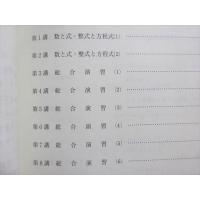 第1講 数と式・整式と方程式(1)
第2講 数と式・整式と方程式(2)
第3講 総合演習 (1)
第4講 総合演習 (2)
第5講 総合演習 (3)
第6講 総合演習 (4)
第7講 総合演習 (5)
第8講 総合演習 (6)